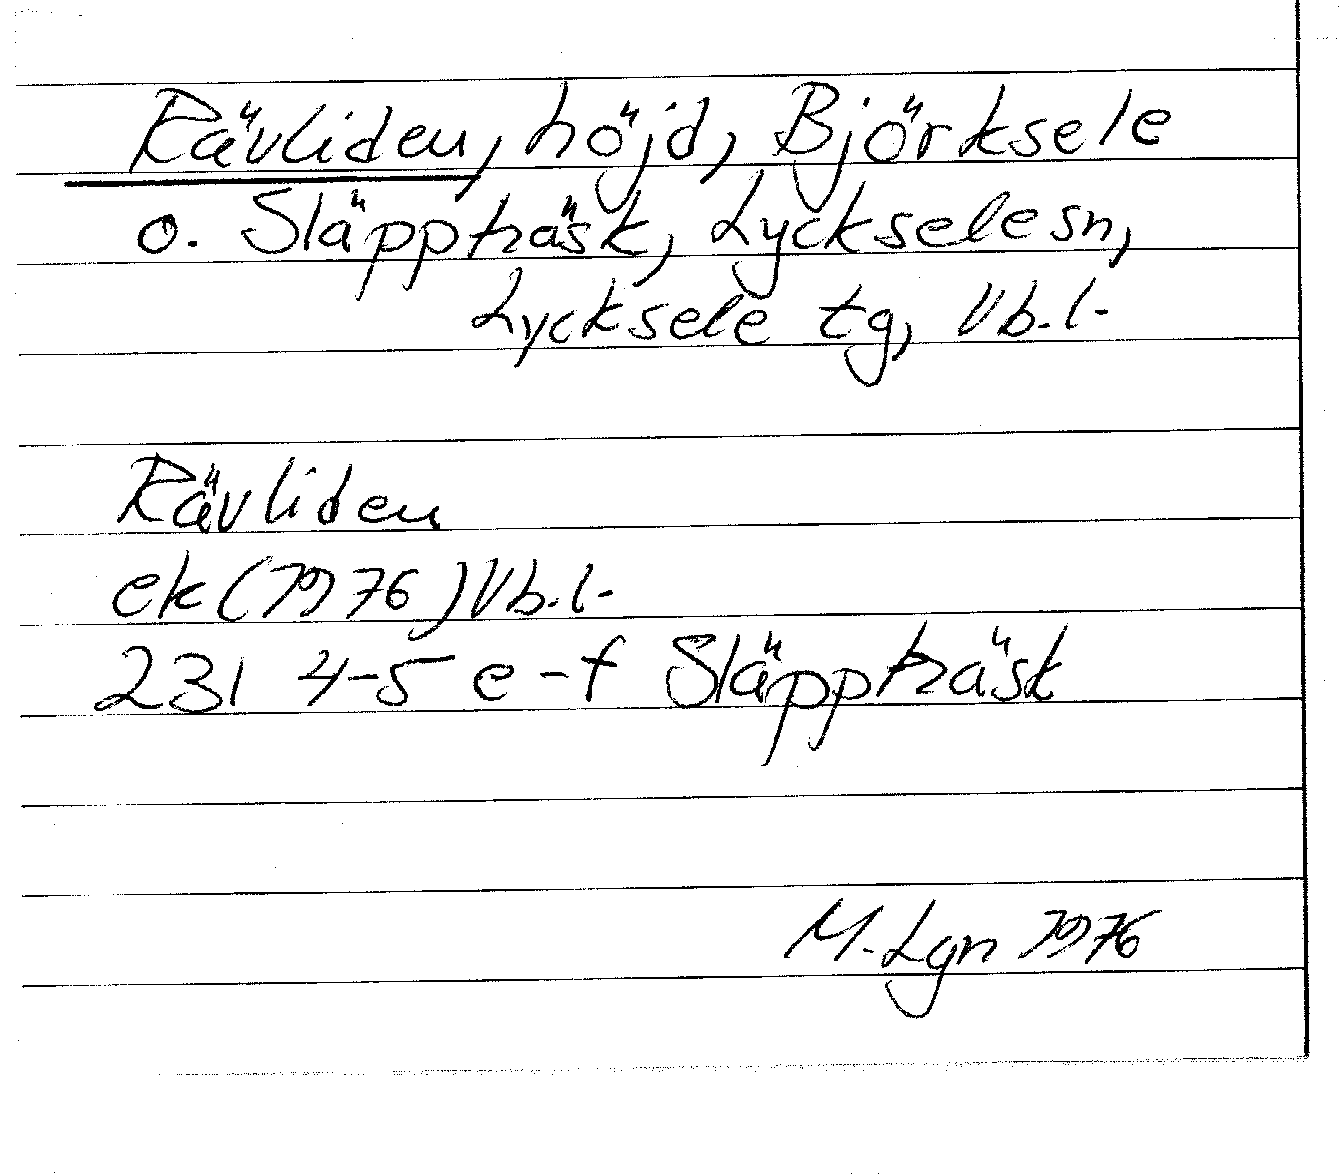 Rävliden, höjd, Björksele
o. Släppträsk, Lycksele sn,
Lycksele tg, Vb.l.
Rävliden
ek (1976) Vb.l.
231 4-5 e-f Släppträsk
M. Lgn 1976